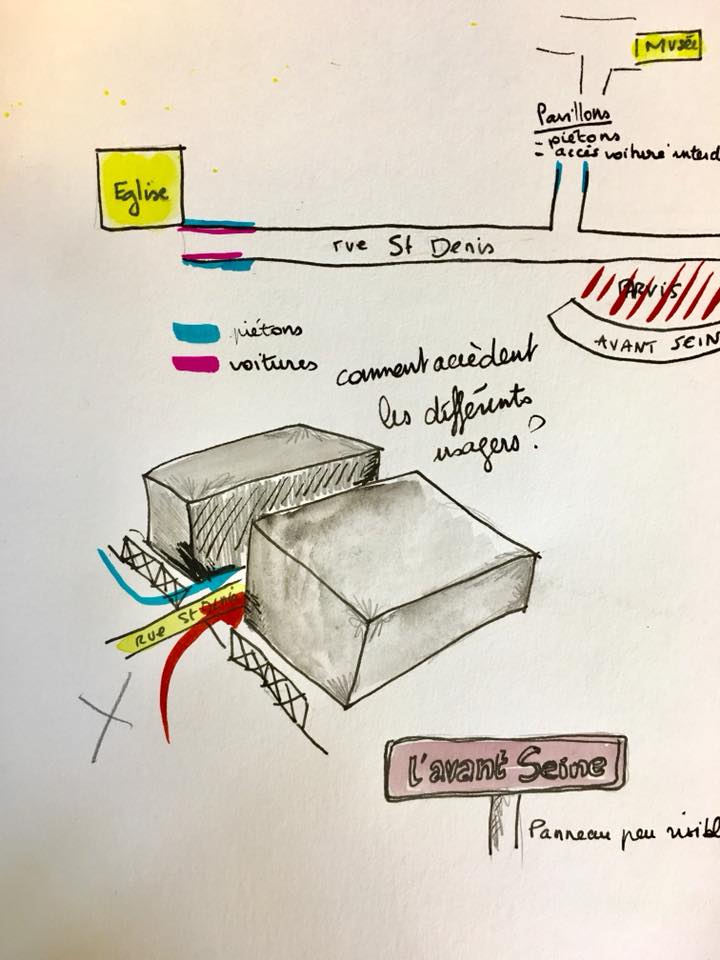 Musée
Pavillons
- piétons
- accès voiture interd
Eglise
rue St Denis
PARVIS
AVANT SEIN
piétons
voitures
comment accèdent
les différents
usagers ?
rue St Denis
L'avant Seine
Panneau peu visibl